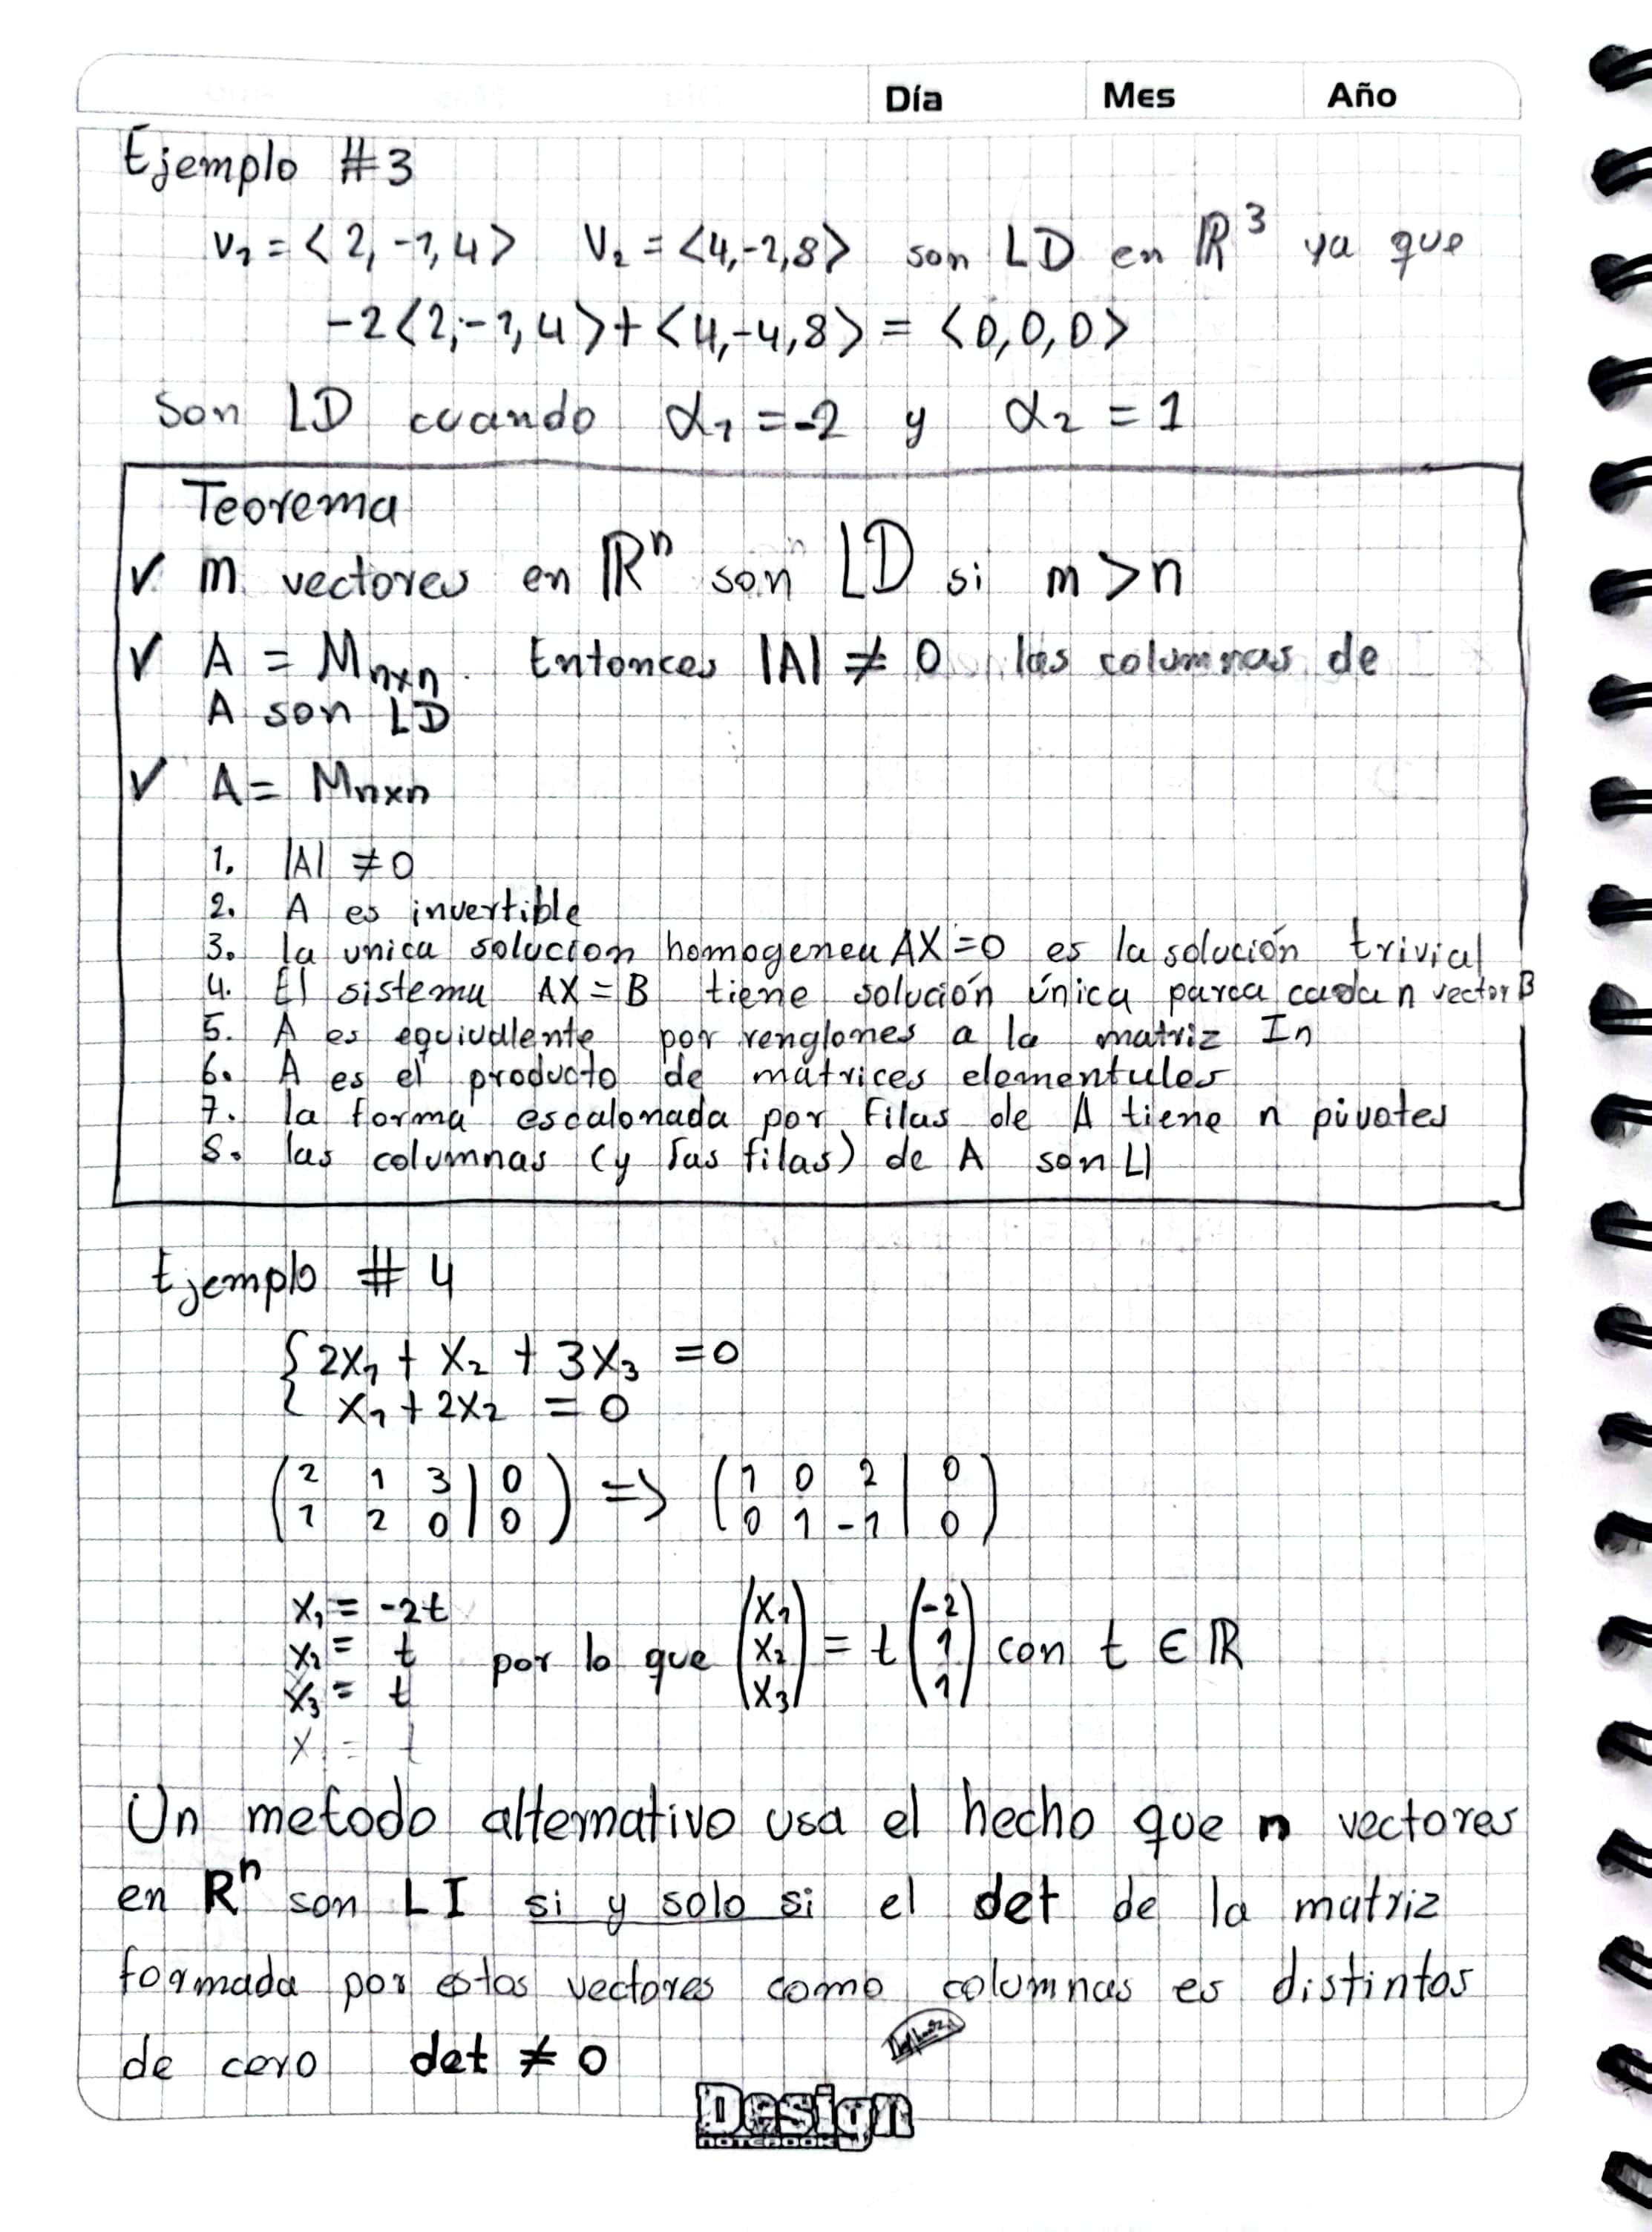 Día Mes Año
Ejemplo #3
V₁ = <2, -1, 4> V₂ = <4, -2, 8> son LD en ℝ³ ya que
-2<2, -1, 4> + <4, -4, 8> = <0, 0, 0>
Son LD cuando α₁ = -2 y α₂ = 1
Teorema
✓ m vectores en ℝⁿ son LD si m > n
✓ A = Mₙₓₙ. Entonces |A| ≠ 0 las columnas de
A son LD
✓ A = Mₙₓₙ
1. |A| ≠ 0
2. A es invertible
3. la unica solucion homogenea AX = 0 es la solución trivial
4. El sistema AX = B tiene solución única para cada n vector B
5. A es equivalente por renglones a la matriz In
6. A es el producto de matrices elementales
7. la forma escalonada por Filas de A tiene n pivotes
8. las columnas (y las filas) de A son LI
Ejemplo # 4
{ 2x₁ + x₂ + 3x₃ = 0
x₁ + 2x₂ = 0
( 2 1 3 | 0 ) => ( 1 0 2 | 0 )
( 1 2 0 | 0 ) ( 0 1 -1 | 0 )
x₁ = -2t (x₁) (-2)
x₂ = t por lo que (x₂) = t (1) con t ∈ ℝ
x₃ = t (x₃) (1)
x = t
Un metodo alternativo usa el hecho que n vectores
en Rⁿ son LI si y solo si el det de la matriz
formada por estos vectores como columnas es distintos
de cero det ≠ 0
Design
NOTEBOOK